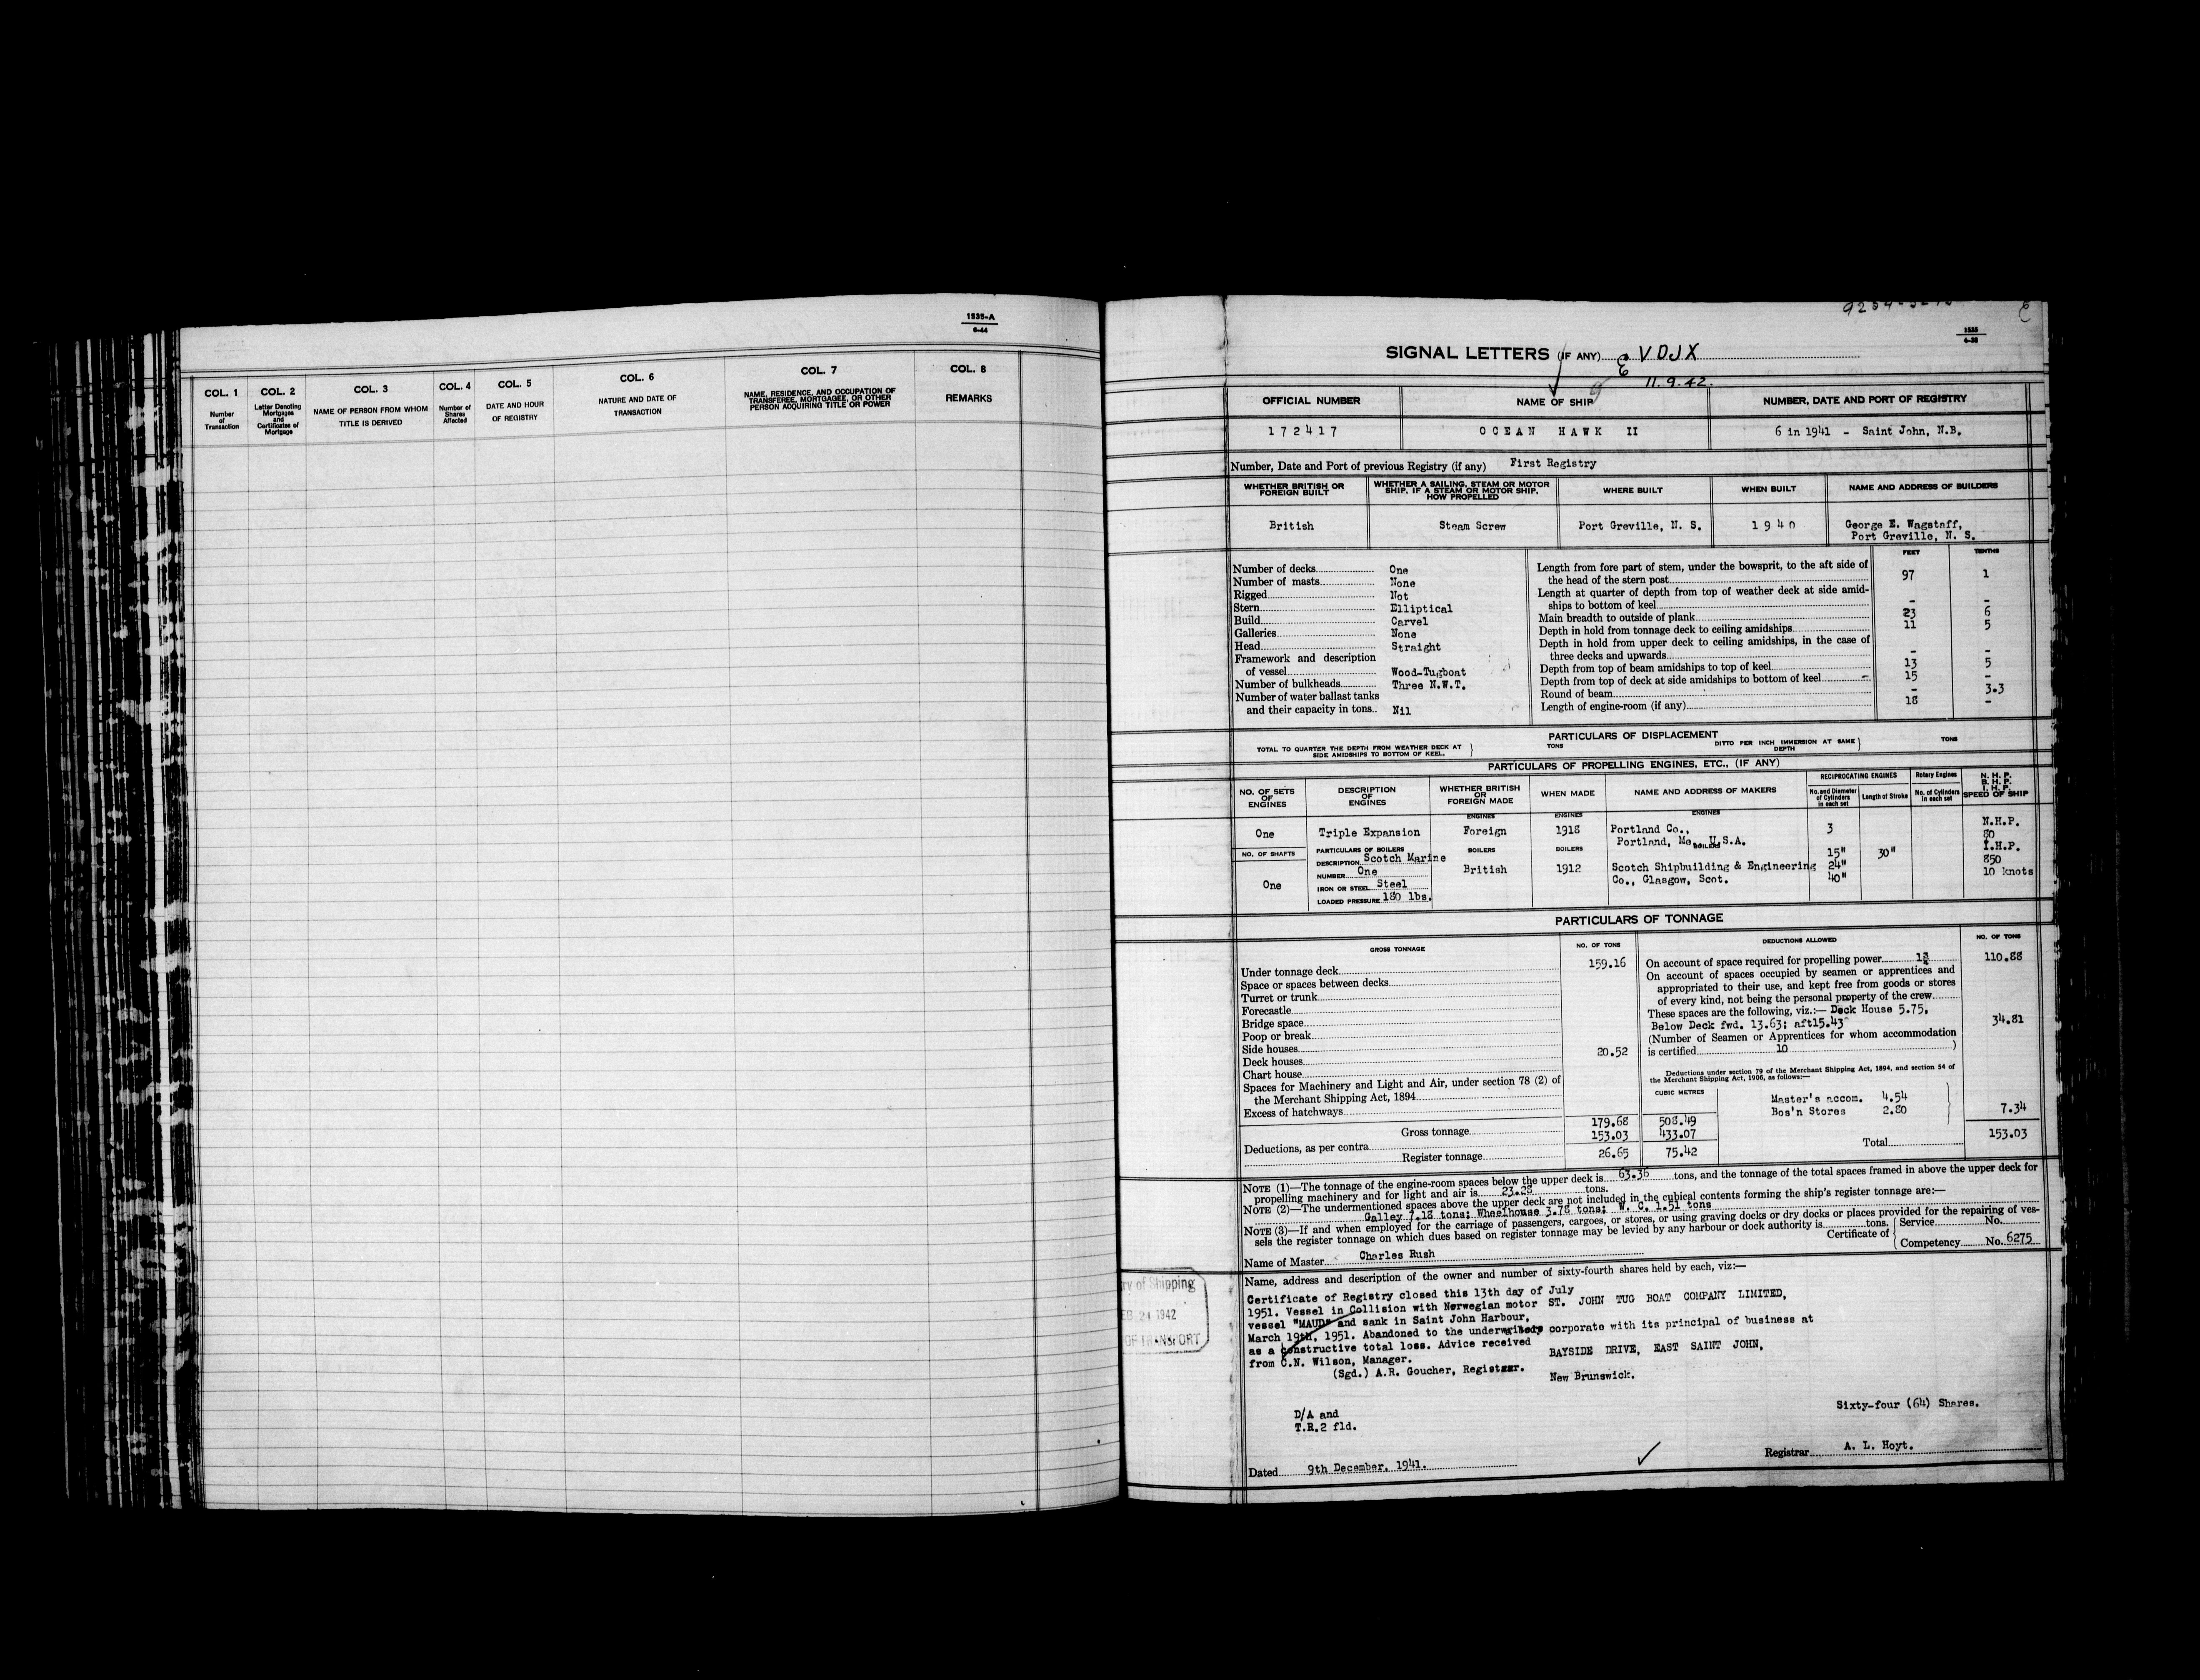 1535-A
6-44
COL. 1
Number
of
Transaction
COL. 2
Letter Denoting
Mortgages
and
Certificates of
Mortgage
COL. 3
NAME OF PERSON FROM WHOM
TITLE IS DERIVED
COL. 4
Number of
Shares
Affected
COL. 5
DATE AND HOUR
OF REGISTRY
COL. 6
NATURE AND DATE OF
TRANSACTION
COL. 7
NAME, RESIDENCE, AND OCCUPATION OF
TRANSFEREE, MORTGAGEE, OR OTHER
PERSON ACQUIRING TITLE OR POWER
COL. 8
REMARKS
1535
6-38
SIGNAL LETTERS (IF ANY) VDJX
11.9.42.
OFFICIAL NUMBER
NAME OF SHIP
NUMBER, DATE AND PORT OF REGISTRY
172417
OCEAN HAWK II
6 in 1941 - Saint John, N.B.
Number, Date and Port of previous Registry (if any) First Registry
WHETHER BRITISH OR
FOREIGN BUILT
WHETHER A SAILING, STEAM OR MOTOR
SHIP. IF A STEAM OR MOTOR SHIP,
HOW PROPELLED
WHERE BUILT
WHEN BUILT
NAME AND ADDRESS OF BUILDERS
British
Steam Screw
Port Greville, N. S.
1940
George E. Wagstaff,
Port Greville, N. S.
FEET
TENTHS
Number of decks One
Number of masts None
Rigged Not
Stern Elliptical
Build Carvel
Galleries None
Head Straight
Framework and description
of vessel Wood-Tugboat
Number of bulkheads Three N.W.T.
Number of water ballast tanks
and their capacity in tons.. Nil
Length from fore part of stem, under the bowsprit, to the aft side of
the head of the stern post 97 1
Length at quarter of depth from top of weather deck at side amid-
ships to bottom of keel - -
Main breadth to outside of plank 23 6
Depth in hold from tonnage deck to ceiling amidships 11 5
Depth in hold from upper deck to ceiling amidships, in the case of
three decks and upwards - -
Depth from top of beam amidships to top of keel 13 5
Depth from top of deck at side amidships to bottom of keel 15 -
Round of beam - 3.3
Length of engine-room (if any) 18 -
PARTICULARS OF DISPLACEMENT
TOTAL TO QUARTER THE DEPTH FROM WEATHER DECK AT
SIDE AMIDSHIPS TO BOTTOM OF KEEL.
TONS
DITTO PER INCH IMMERSION AT SAME
DEPTH
TONS
PARTICULARS OF PROPELLING ENGINES, ETC., (IF ANY)
NO. OF SETS
OF
ENGINES
DESCRIPTION
OF
ENGINES
WHETHER BRITISH
OR
FOREIGN MADE
WHEN MADE
NAME AND ADDRESS OF MAKERS
RECIPROCATING ENGINES
No. and Diameter
of Cylinders
in each set
Length of Stroke
Rotary Engines
No. of Cylinders
in each set
N. H. P.
B. H. P.
I. H. P.
SPEED OF SHIP
ENGINES
ENGINES
ENGINES
One
Triple Expansion
Foreign
1918
Portland Co.,
Portland, Me. U.S.A.
3
N.H.P.
80
NO. OF SHAFTS
PARTICULARS OF BOILERS
BOILERS
BOILERS
BOILERS
15"
24"
40"
30"
I.H.P.
850
10 knots
One
DESCRIPTION Scotch Marine
NUMBER One
IRON OR STEEL Steel
LOADED PRESSURE 180 lbs.
British
1912
Scotch Shipbuilding & Engineering
Co., Glasgow, Scot.
PARTICULARS OF TONNAGE
GROSS TONNAGE
NO. OF TONS
DEDUCTIONS ALLOWED
NO. OF TONS
Under tonnage deck 159.16
Space or spaces between decks
Turret or trunk
Forecastle
Bridge space
Poop or break
Side houses
Deck houses 20.52
Chart house
Spaces for Machinery and Light and Air, under section 78 (2) of
the Merchant Shipping Act, 1894
Excess of hatchways
Gross tonnage 179.68 508.49
Deductions, as per contra 153.03 433.07
Register tonnage 26.65 75.42
On account of space required for propelling power 110.88
On account of spaces occupied by seamen or apprentices and
appropriated to their use, and kept free from goods or stores
of every kind, not being the personal property of the crew
These spaces are the following, viz.:— Deck House 5.75,
Below Deck fwd. 13.63; aft15.43 34.81
(Number of Seamen or Apprentices for whom accommodation
is certified 10 )
Deductions under section 79 of the Merchant Shipping Act, 1894, and section 54 of
the Merchant Shipping Act, 1906, as follows:—
CUBIC METRES
Master's accom. 4.54
Bos'n Stores 2.80
7.34
Total 153.03
NOTE (1)—The tonnage of the engine-room spaces below the upper deck is 63.36 tons, and the tonnage of the total spaces framed in above the upper deck for
propelling machinery and for light and air is 23.28 tons.
NOTE (2)—The undermentioned spaces above the upper deck are not included in the cubical contents forming the ship's register tonnage are:—
Galley 7.18 tons; Wheelhouse 3.78 tons; W. C. 1.51 tons
NOTE (3)—If and when employed for the carriage of passengers, cargoes, or stores, or using graving docks or dry docks or places provided for the repairing of ves-
sels the register tonnage on which dues based on register tonnage may be levied by any harbour or dock authority is tons.
Certificate of
Service No.
Competency No. 6275
Name of Master Charles Rush
Name, address and description of the owner and number of sixty-fourth shares held by each, viz:—
Certificate of Registry closed this 13th day of July
1951. Vessel in Collision with Norwegian motor
vessel "MAUD" and sank in Saint John Harbour,
March 19th, 1951. Abandoned to the underwriters
as a constructive total loss. Advice received
from C.N. Wilson, Manager.
(Sgd.) A.R. Goucher, Registrar.
ST. JOHN TUG BOAT COMPANY LIMITED,
corporate with its principal of business at
BAYSIDE DRIVE, EAST SAINT JOHN,
New Brunswick.
ry of Shipping
EB 21 1942
OF TRANSPORT
Sixty-four (64) Shares.
D/A and
T.R.2 fld.
Registrar A. L. Hoyt.
Dated 9th December, 1941.